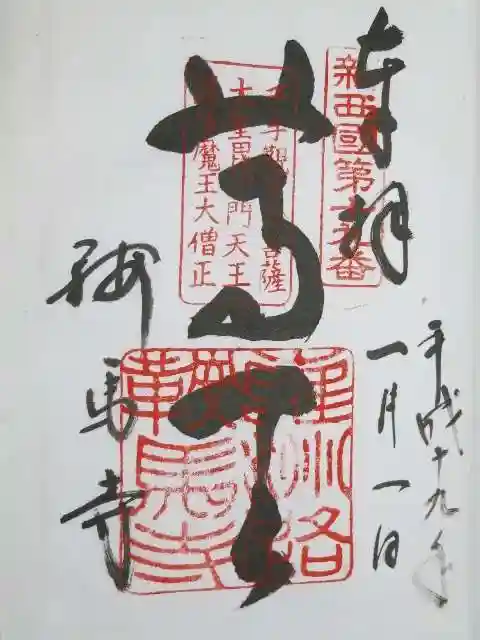 奉拝
新西國第十九番
平成十九年
一月一日
千手觀 菩薩
大聖毘 門天王
魔王大僧正
尊天
鞍馬寺